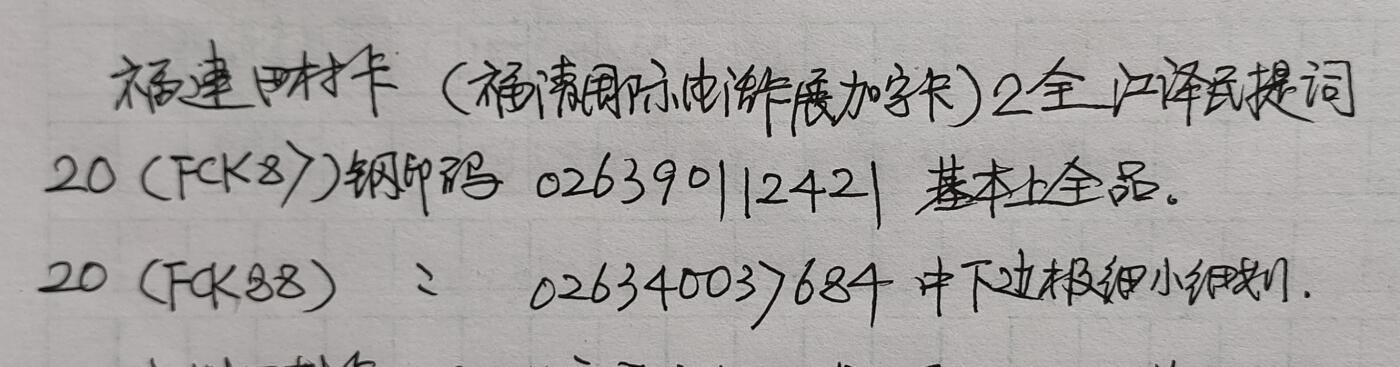 福建田村卡（福清国际电话卡展加字卡）2全 江泽民提词
20（FCK87）钢印码 026390112421 基本上全品。
20（FCK88） 〃 026340037684 中下边极细小细划.